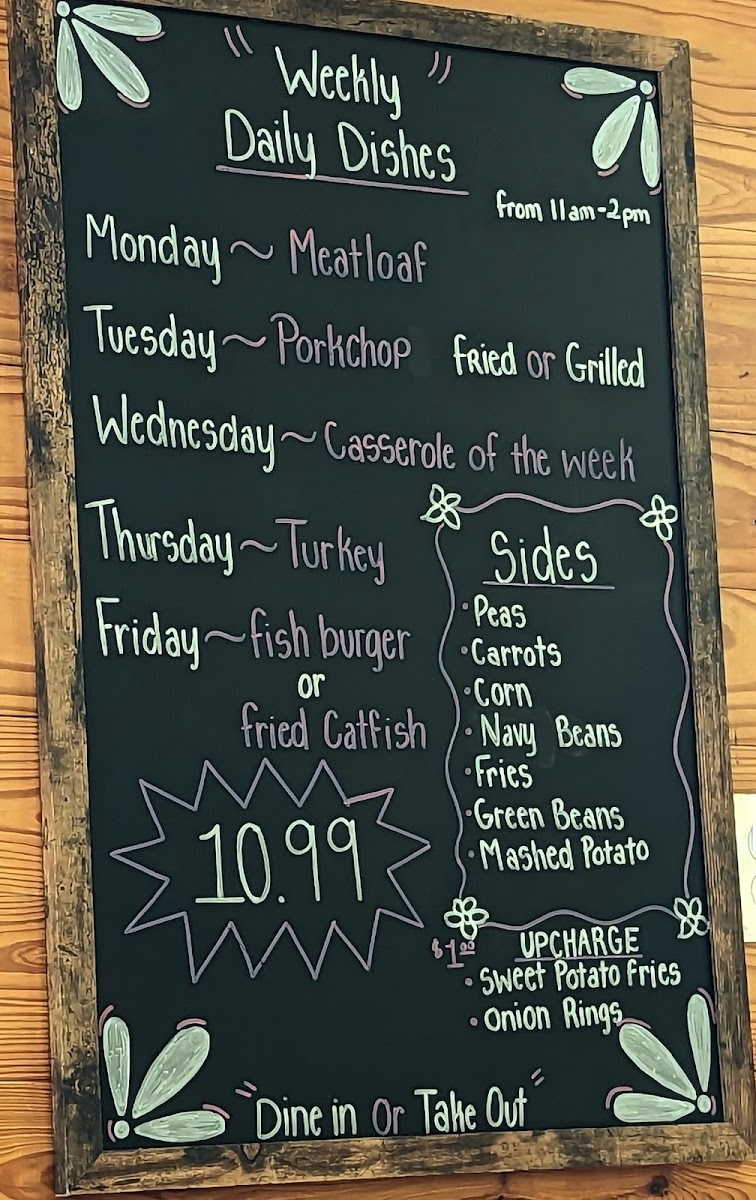 " Weekly "
Daily Dishes
from 11am-2pm
Monday ~ Meatloaf
Tuesday ~ Porkchop fRied or Grilled
Wednesday ~ Casserole of the week
Thursday ~ Turkey
Friday ~ fish burger
or
fried Catfish
10.99
Sides
· Peas
· Carrots
· Corn
· Navy Beans
· Fries
· Green Beans
· Mashed Potato
$1.00 UPCHARGE
· Sweet Potato fries
· Onion Rings
"Dine in Or Take Out"